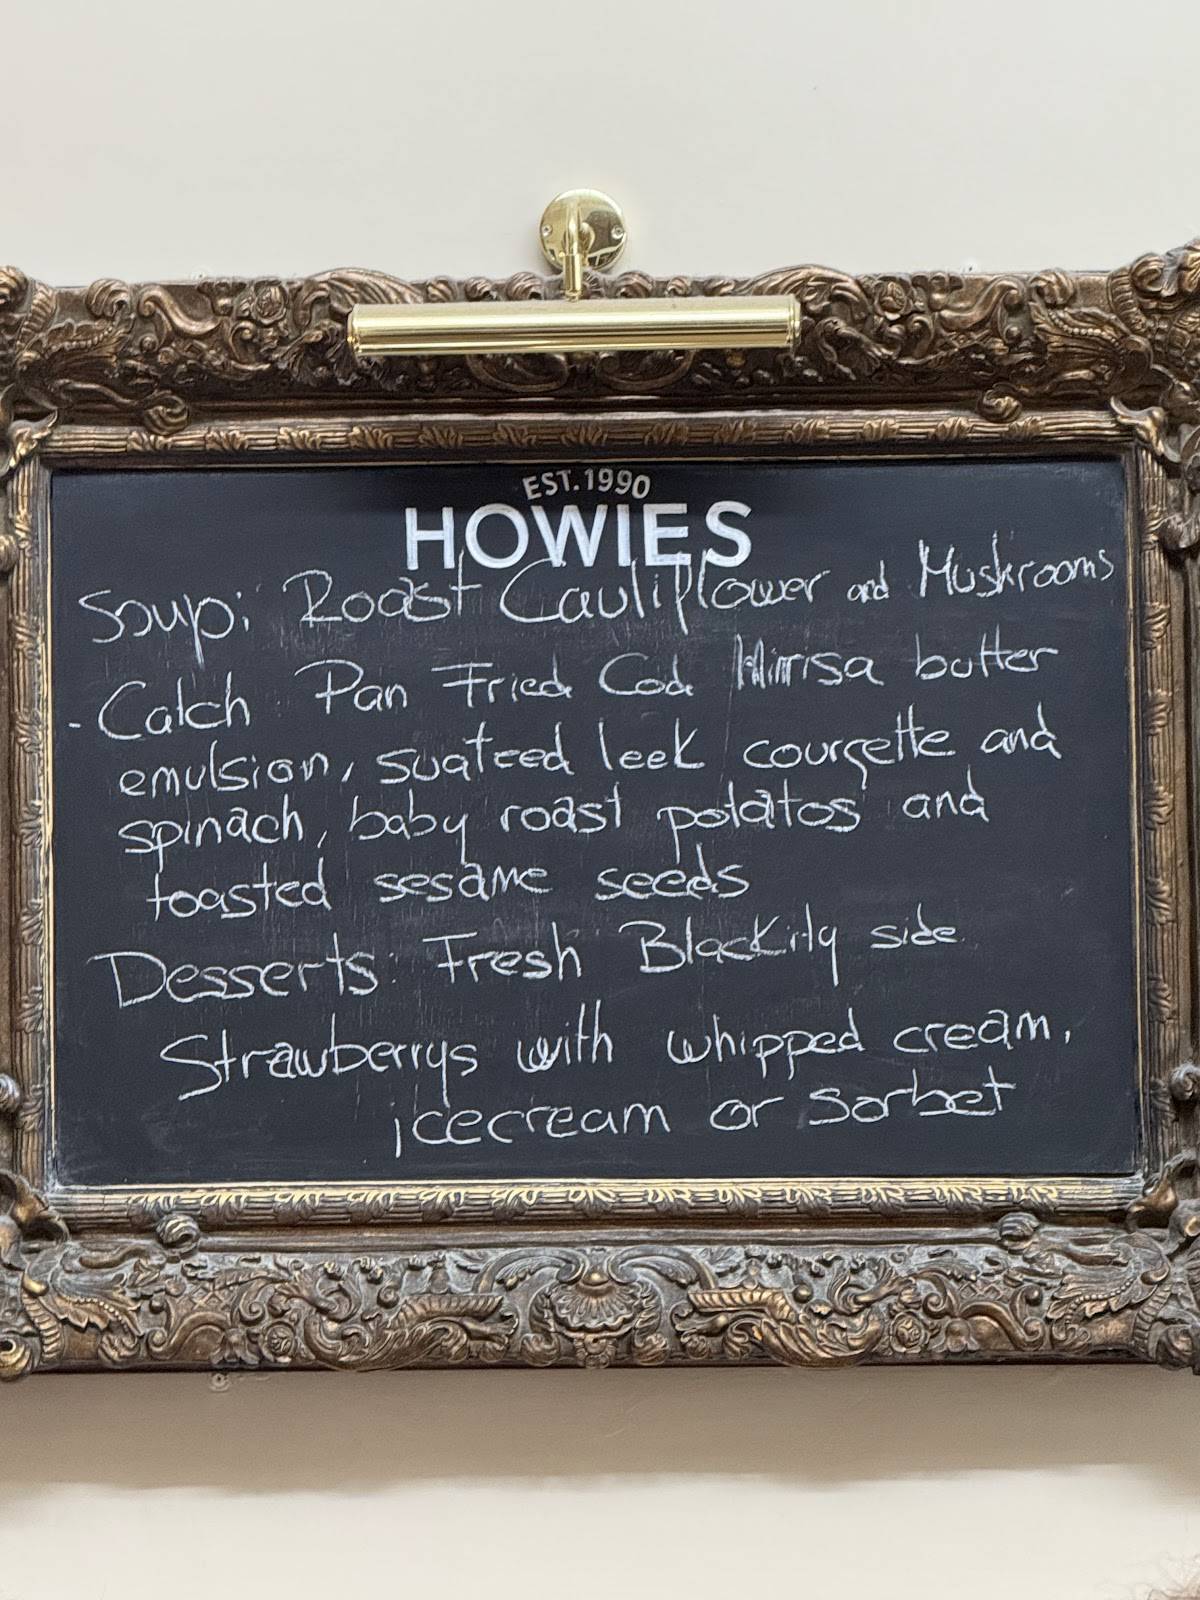 EST. 1990
HOWIES
Soup: Roast Cauliflower and Mushrooms
- Catch : Pan Fried Cod butter
emulsion, suateed leek courgette and
spinach, baby roast potatos and
toasted sesame seeds
Desserts: Fresh side
Strawberrys with whipped cream,
icecream or sorbet